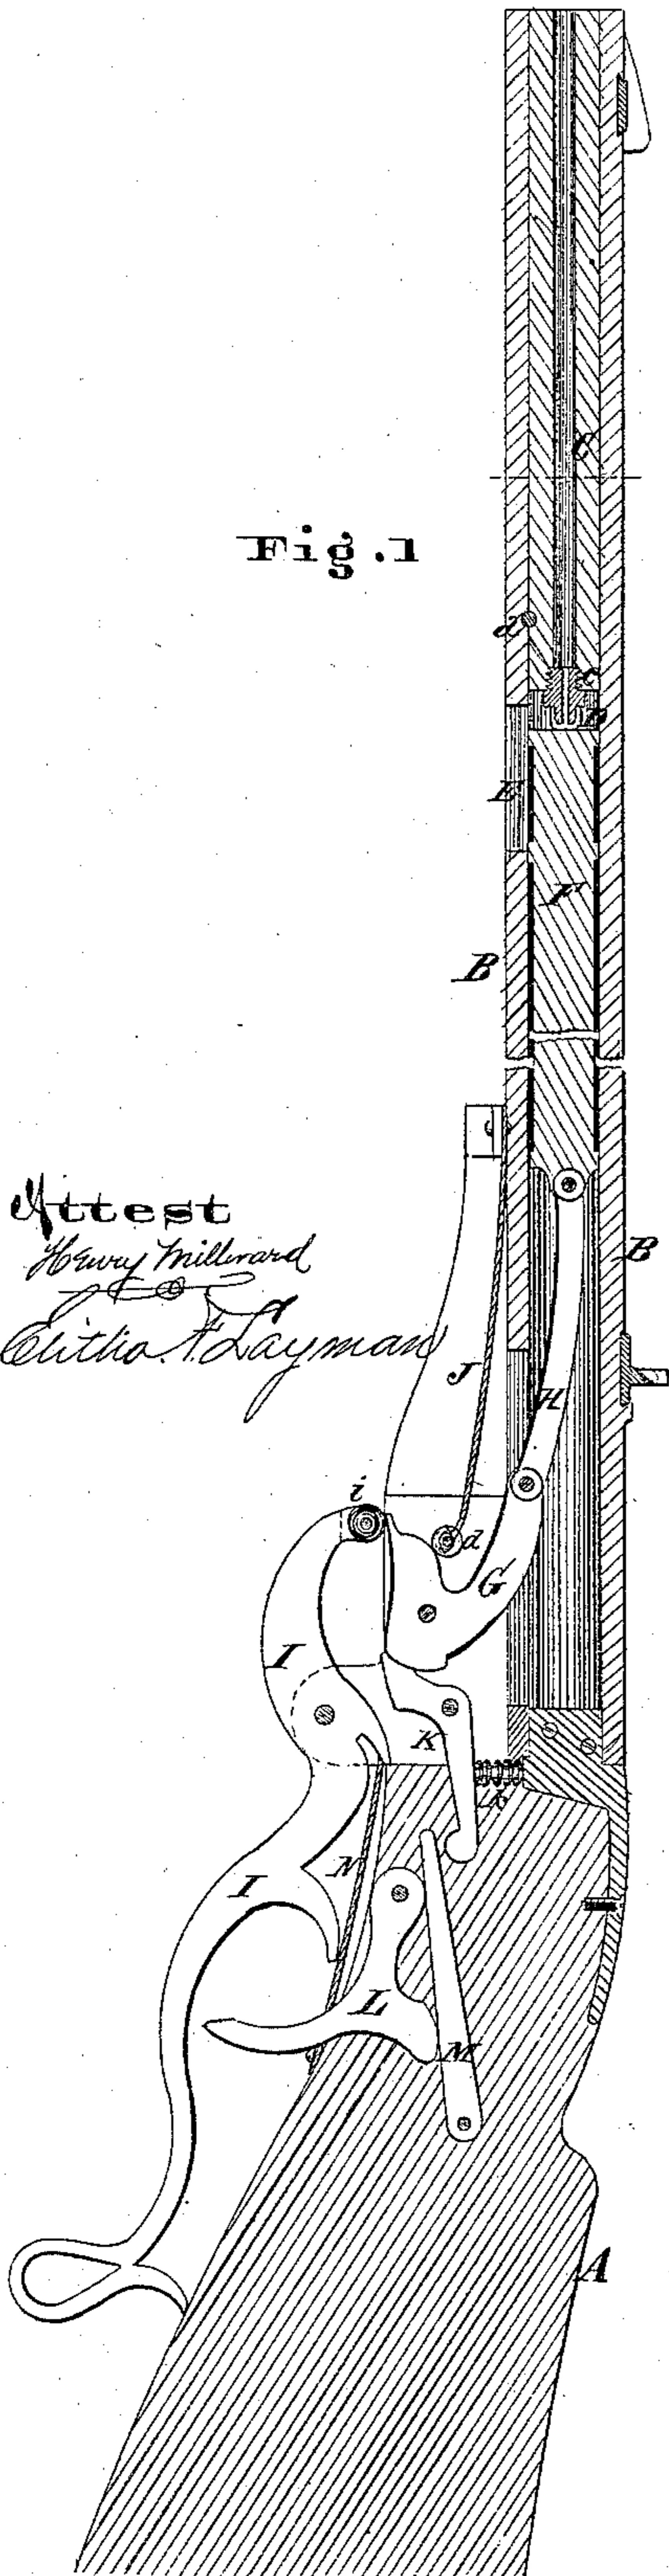 C
Fig. 1
d
C
D
E
F
B
Attest
Henry Millward
B
Layman
J
H
i
d
G
I
K
h
N
I
L
M
A